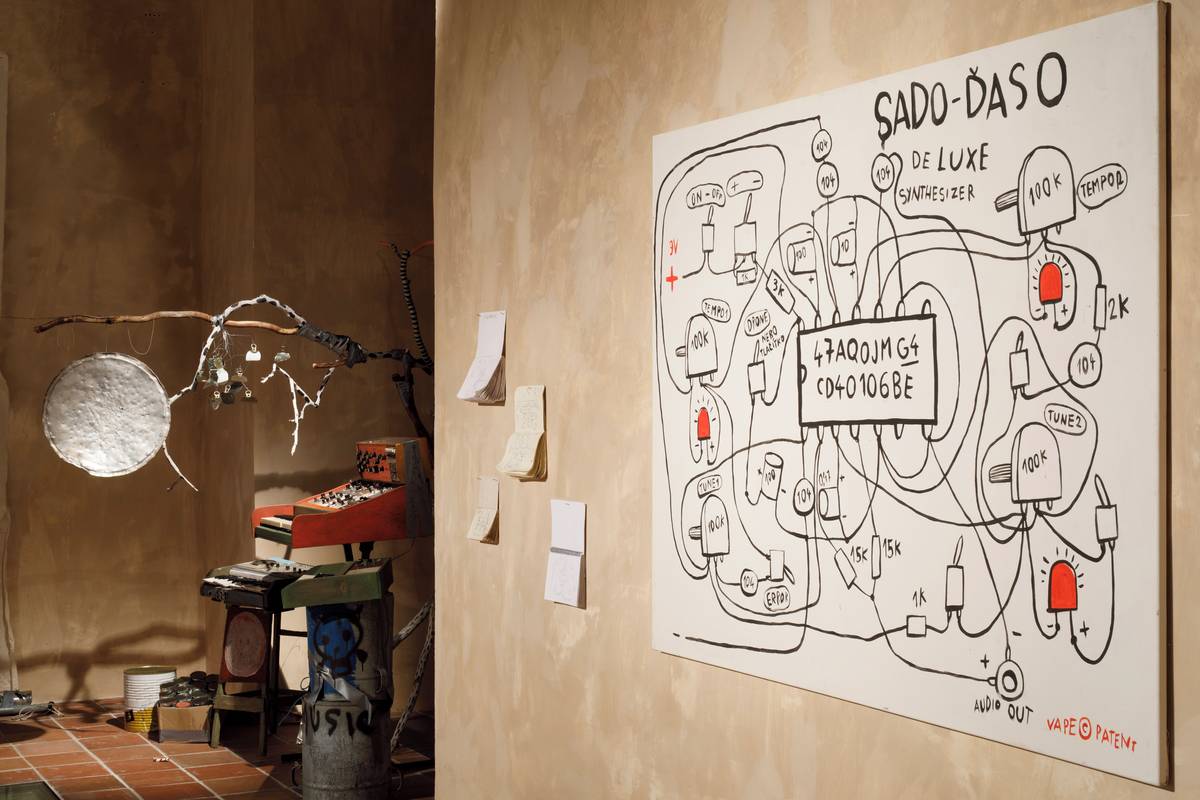 SADO-ĎASO
DE LUXE
SYNTHESIZER
104
104
104
ON-OFF
+ -
3V
+
1K
100
10
3K
100K
TEMPO2
2K
104
TEMPO1
100K
DRONE
47AQOJMG4
CD40106BE
TUNE2
100K
TUNE1
100K
100
104
047
15K
15K
104
ERROR
1K
+
-
AUDIO OUT
VAPE © PATENT
MUSIC